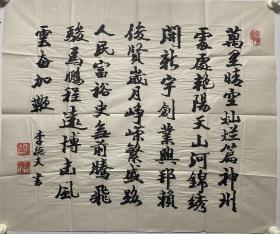 萬里晴空灿烂篇神州
處處艷陽天山河錦綉
開新宇創業興邦賴
俊賢歲月崢嶸繁盛路
人民富裕史無前騰飛
駿馬鵬程遠搏击風
雲奋加鞭
李文書